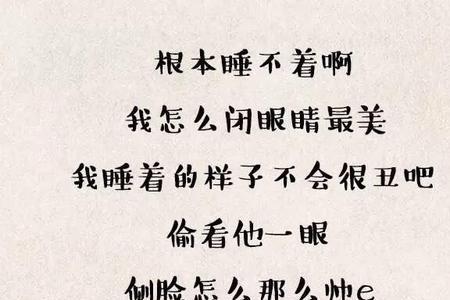 根本睡不着啊
我怎么闭眼睛最美
我睡着的样子不会很丑吧
偷看他一眼
侧脸怎么那么帅e